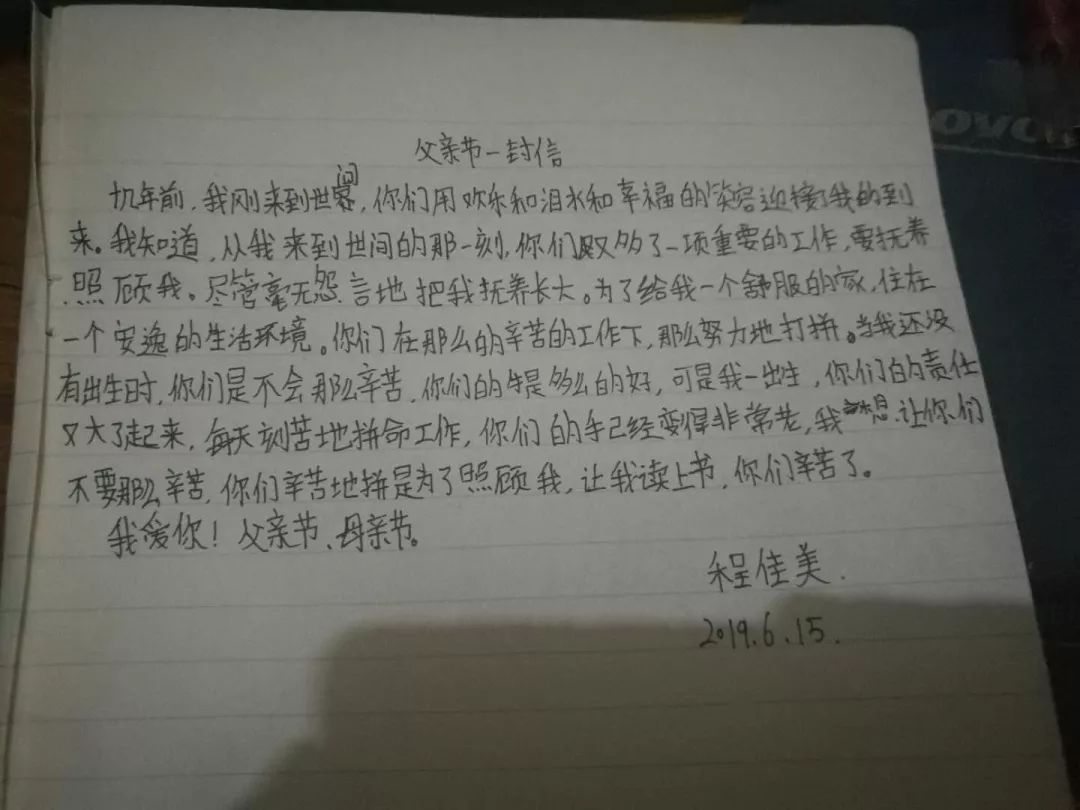 父亲节一封信
几年前，我刚来到世间，你们用欢乐和泪水和幸福的笑容迎接了我的到
来。我知道，从我来到世间的那一刻，你们又多了一项重要的工作，要抚养
照顾我。尽管毫无怨言地把我抚养长大。为了给我一个舒服的家，住在
一个安逸的生活环境。你们在那么的辛苦的工作下，那么努力地打拼。当我还没
有出生时，你们是不会那么辛苦，你们的是多么的好，可是我一出生，你们的责任
又大了起来，每天刻苦地拼命工作，你们的手已经变得非常老，我想让你们
不要那么辛苦，你们辛苦地拼是为了照顾我，让我读上书，你们辛苦了。
我爱你！父亲节、母亲节。
程佳美.
2019.6.15.
ovo